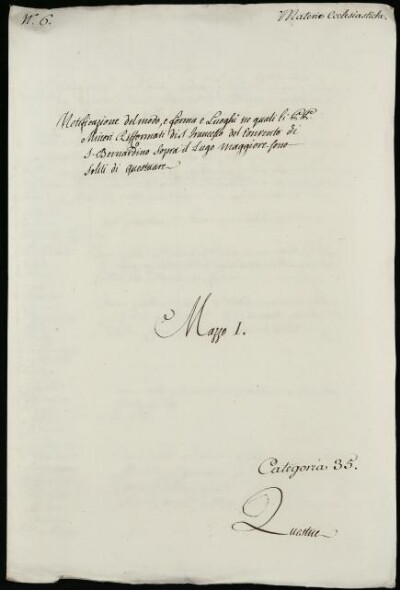 N.° 6.
Materie Ecclesiastiche.
Notificazione del modo, e forma e Luoghi ne quali li
Minori Rifformati di S. Francesco del Convento di
S. Bernardino Sopra il Lago Maggiore sono
soliti di questuare
Mazzo 1.
Categoria 35.
Questue